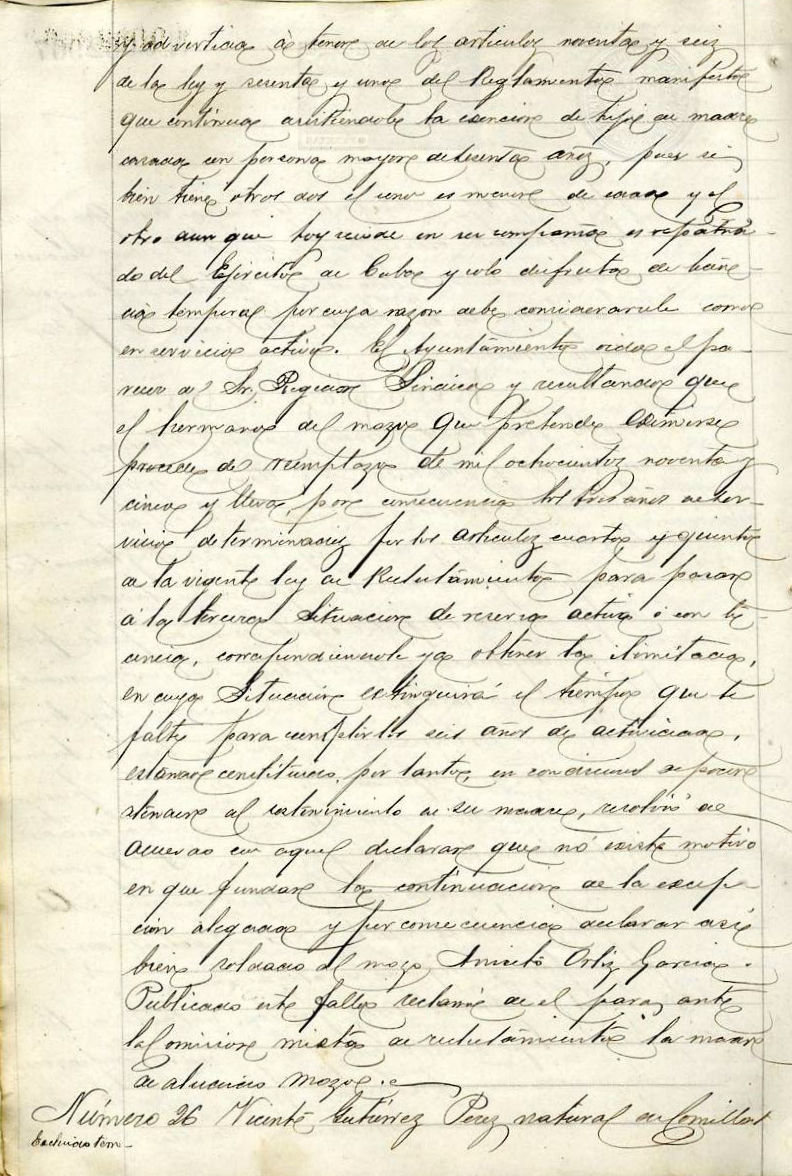 y advertida á tenor de los articulos noventa y seiz
de la ley y sesenta y uno del Reglamento manifestó
que continua asistiendole la esencion de hijo de madre
casada con persona mayor de sesenta años, pues si
bien tiene otros dos el uno es menor de edad y el
otro aun que hoy reside en su compañia es repatria-
do del Ejercito de Cuba y solo disfruta de licen-
cia temporal por cuya razon debe considerarsele como
en servicio activo. El Ayuntamiento oido el pa-
recer del Sr. Regidor Sindico y resultando que
el hermano del mozo que pretende eximirse
procede del reemplazo de mil ochocientos noventa y
cinco y lleva por consecuencia los tres años de ser-
vicio determinados por los articulos cuarto y quinto
de la vigente ley de Reclutamiento para pasar
á la tercera situacion de reserva activa ó con li-
cencia, correspondiendole ya obtener la ilimitada,
en cuya situacion extinguirá el tiempo que le
falte para cumplir los seis años de actividad,
estando constituido, por tanto, en condiciones de poder
atender al sostenimiento de su madre, resolvió de
acuerdo con aquel declarar que no existe motivo
en que fundar la continuacion de la excep-
cion alegada y por consecuencia declarar asi
bien soldado al mozo Aniceto Ortiz Garcia.
Publicado este fallo reclamó de el para ante
la Comision mixta de reclutamiento la madre
de aludido mozo.
Número 26 Vicente Gutiérrez Perez natural de Comillas
Excluido tem-